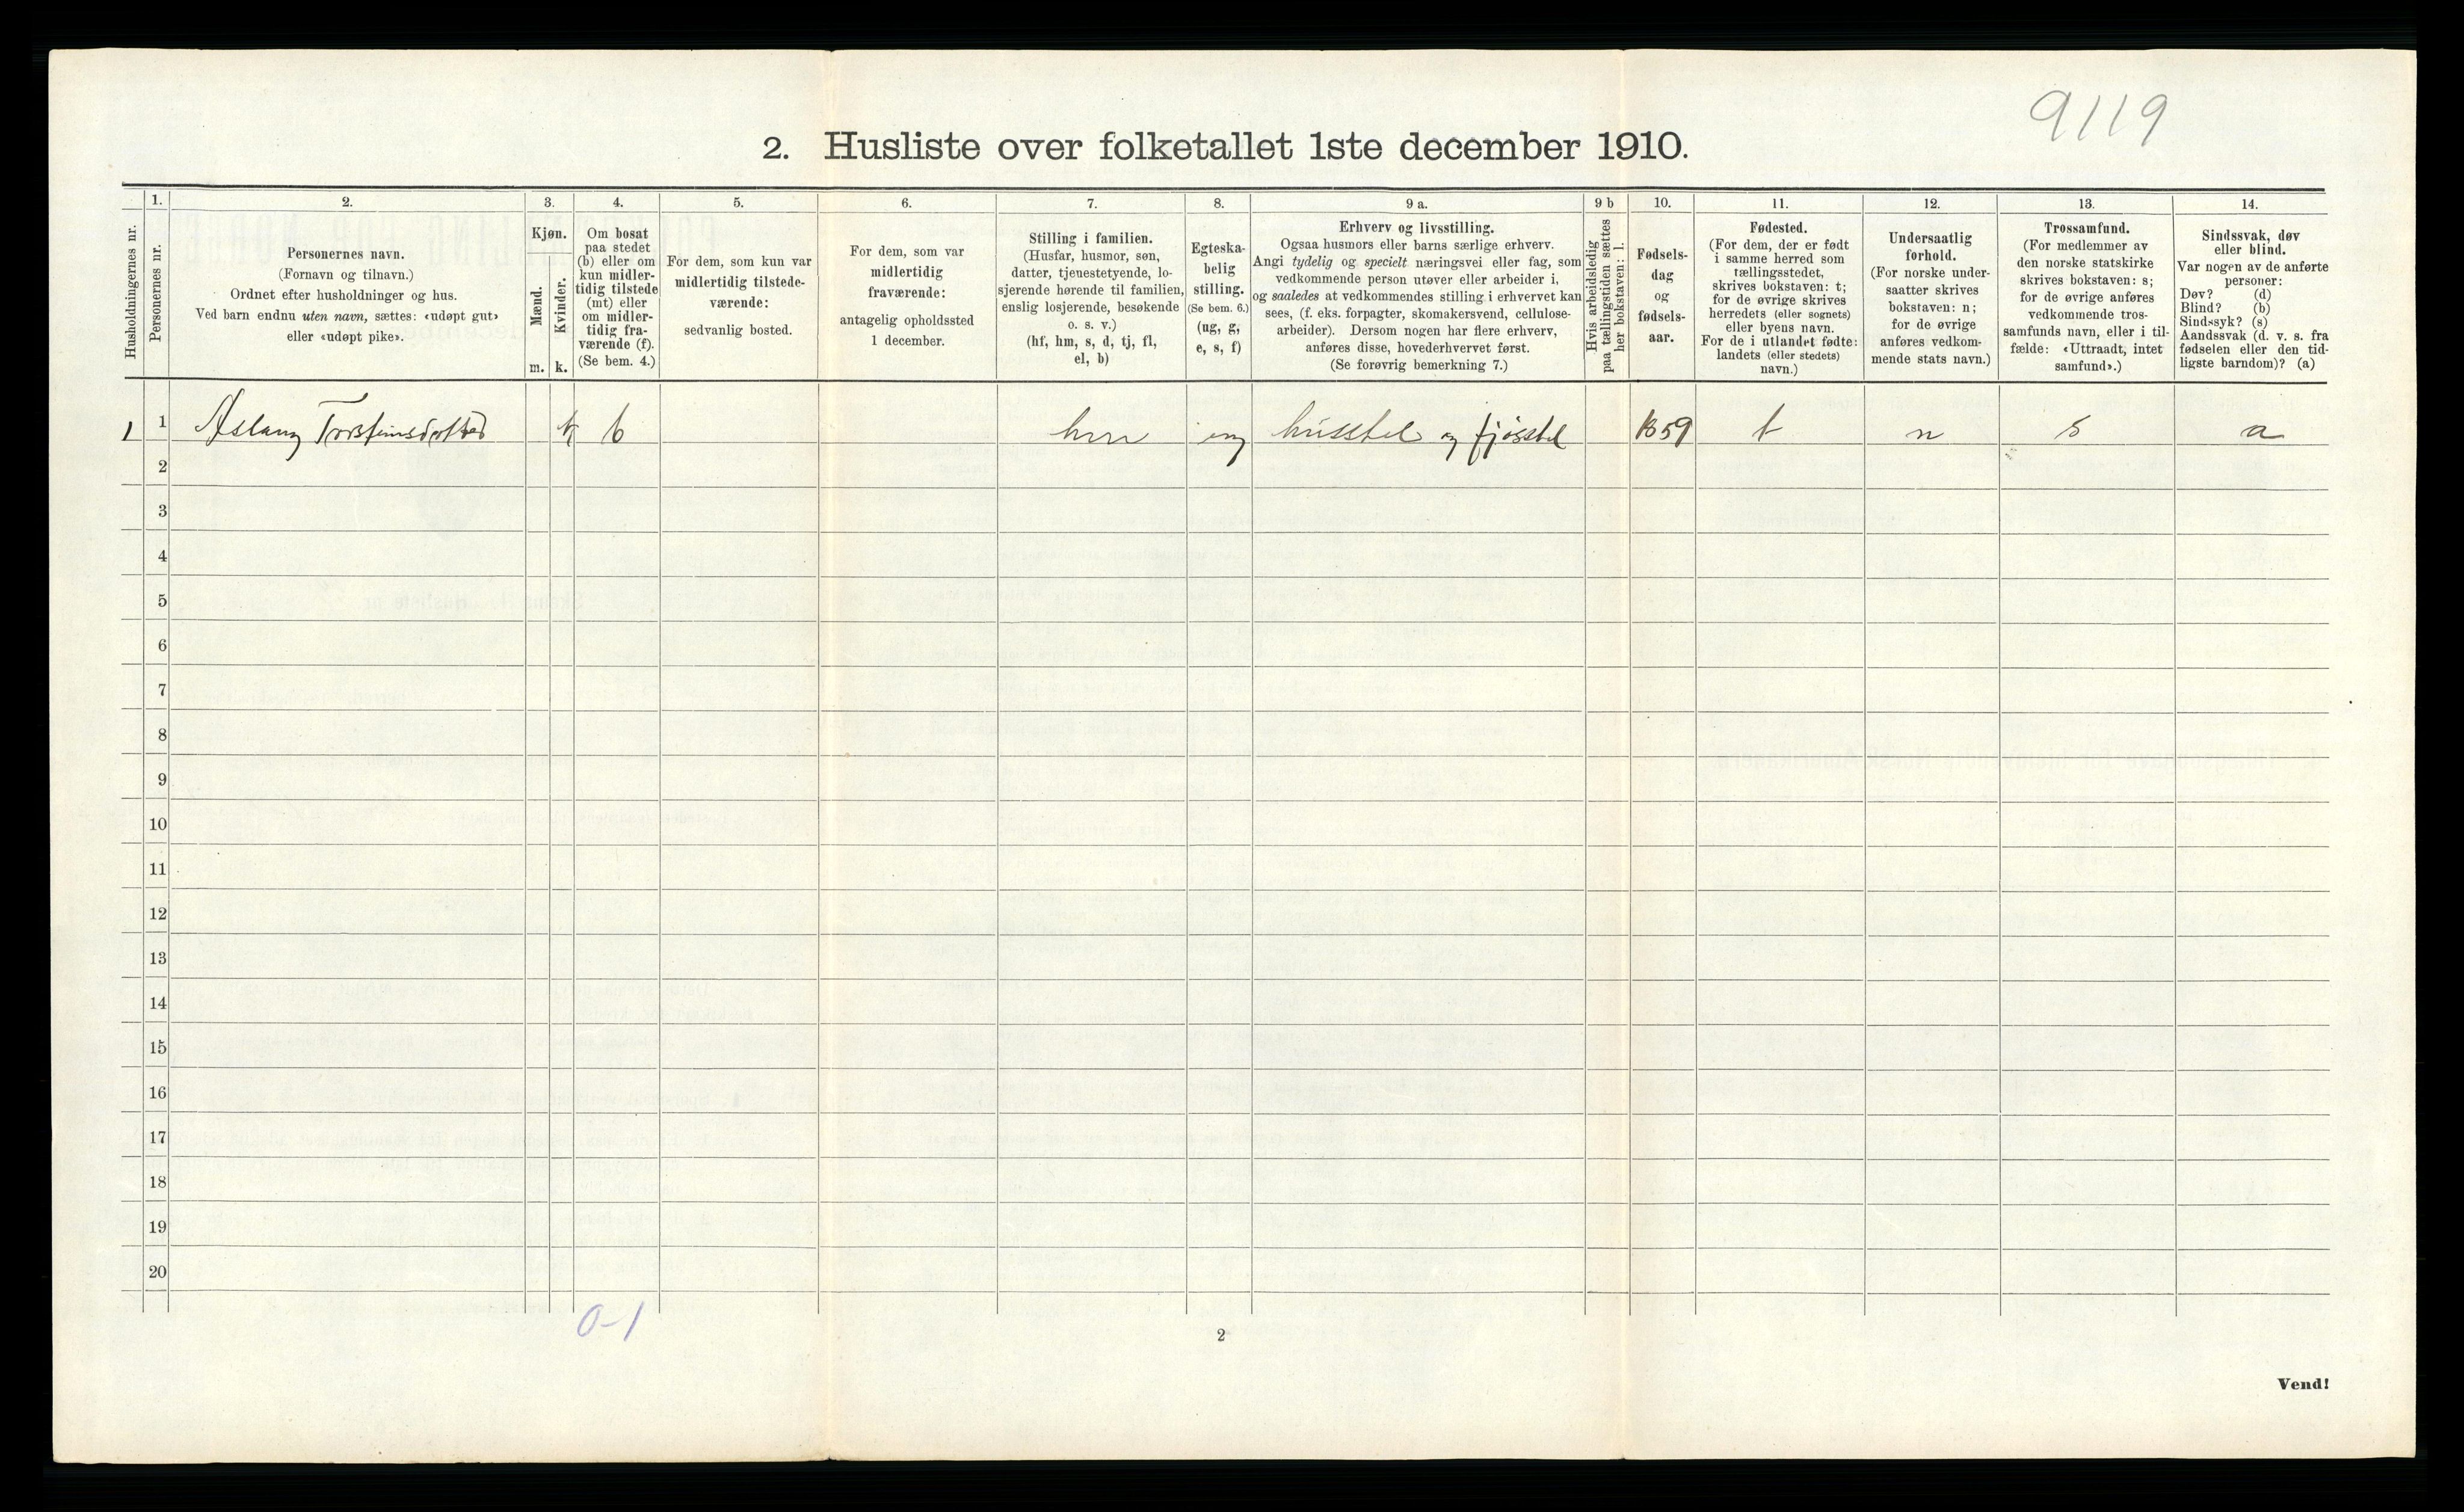 9119
2. Husliste over folketallet 1ste december 1910.
Husholdningernes nr.
1.
Personernes nr.
2.
Personernes navn.
(Fornavn og tilnavn.)
Ordnet efter husholdninger og hus.
Ved barn endnu uten navn, sættes: «udøpt gut»
eller «udøpt pike».
3.
Kjøn.
Mænd.
Kvinder.
m. k.
4.
Om bosat
paa stedet
(b) eller om
kun midler-
tidig tilstede
(mt) eller
om midler-
tidig fra-
værende (f).
(Se bem. 4.)
5.
For dem, som kun var
midlertidig tilstede-
værende:
sedvanlig bosted.
6.
For dem, som var
midlertidig
fraværende:
antagelig opholdssted
1 december.
7.
Stilling i familien.
(Husfar, husmor, søn,
datter, tjenestetyende, lo-
sjerende hørende til familien,
enslig losjerende, besøkende
o. s. v.)
(hf, hm, s, d, tj, fl,
el, b)
8.
Egteska-
belig
stilling.
(Se bem. 6.)
(ug, g,
e, s, f)
9 a.
Erhverv og livsstilling.
Ogsaa husmors eller barns særlige erhverv.
Angi tydelig og specielt næringsvei eller fag, som
vedkommende person utøver eller arbeider i,
og saaledes at vedkommendes stilling i erhvervet kan
sees, (f. eks. forpagter, skomakersvend, cellulose-
arbeider). Dersom nogen har flere erhverv,
anføres disse, hovederhvervet først.
(Se forøvrig bemerkning 7.)
9 b
Hvis arbeidsledig
paa tællingstiden sættes
her bokstaven: l.
10.
Fødsels-
dag
og
fødsels-
aar.
11.
Fødested.
(For dem, der er født
i samme herred som
tællingsstedet,
skrives bokstaven: t;
for de øvrige skrives
herredets (eller sognets)
eller byens navn.
For de i utlandet fødte:
landets (eller stedets)
navn.)
12.
Undersaatlig
forhold.
(For norske under-
saatter skrives
bokstaven: n;
for de øvrige
anføres vedkom-
mende stats navn.)
13.
Trossamfund.
(For medlemmer av
den norske statskirke
skrives bokstaven: s;
for de øvrige anføres
vedkommende tros-
samfunds navn, eller i til-
fælde: «Uttraadt, intet
samfund».)
14.
Sindssvak, døv
eller blind.
Var nogen av de anførte
personer:
Døv? (d)
Blind? (b)
Sindssyk? (s)
Aandssvak (d. v. s. fra
fødselen eller den tid-
ligste barndom)? (a)
1 1 Aslaug k b ug husstel og fjøsstel 1859 t n s a
2
3
4
5
6
7
8
9
10
11
12
13
14
15
16
17
18
19
20
0-1
2
Vend!